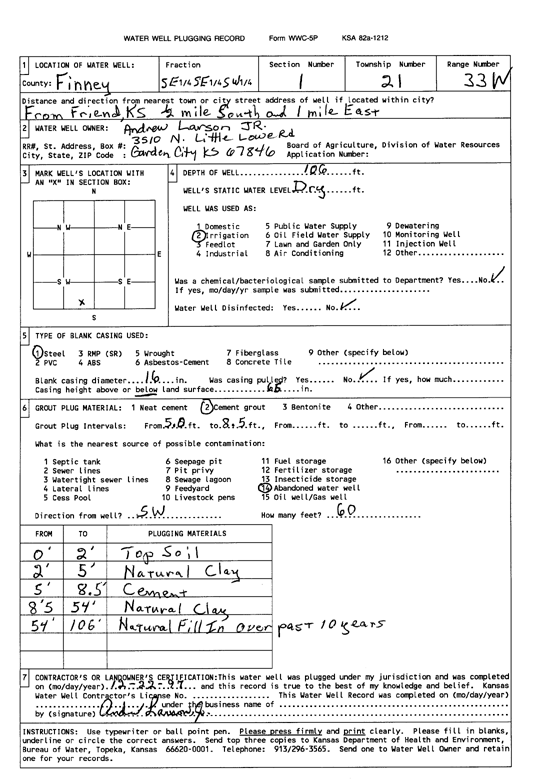 WATER WELL PLUGGING RECORD Form WWC-5P KSA 82a-1212
1 LOCATION OF WATER WELL: Fraction Section Number Township Number Range Number
County: Finney SE1/4 SE1/4 SW1/4 1 21 33W
Distance and direction from nearest town or city street address of well if located within city?
From Friend, KS ½ mile South and 1 mile East
2 WATER WELL OWNER: Andrew Larson JR.
RR#, St. Address, Box #: 3510 N. Little Lowe Rd Board of Agriculture, Division of Water Resources
City, State, ZIP Code : Garden City KS 67846 Application Number:
3 MARK WELL'S LOCATION WITH AN "X" IN SECTION BOX:
N
N W N E
W E
S W S E
X
S
4 DEPTH OF WELL......106......ft.
WELL'S STATIC WATER LEVEL Dry......ft.
WELL WAS USED AS:
1 Domestic 5 Public Water Supply 9 Dewatering
2 Irrigation 6 Oil Field Water Supply 10 Monitoring Well
3 Feedlot 7 Lawn and Garden Only 11 Injection Well
4 Industrial 8 Air Conditioning 12 Other..........
Was a chemical/bacteriological sample submitted to Department? Yes....No.✓
If yes, mo/day/yr sample was submitted...................
Water Well Disinfected: Yes...... No.✓
5 TYPE OF BLANK CASING USED:
1 Steel 3 RMP (SR) 5 Wrought 7 Fiberglass 9 Other (specify below)
2 PVC 4 ABS 6 Asbestos-Cement 8 Concrete Tile ..........................
Blank casing diameter....16....in. Was casing pulled? Yes...... No.✓.... If yes, how much...........
Casing height above or below land surface............66.....in.
6 GROUT PLUG MATERIAL: 1 Neat cement 2 Cement grout 3 Bentonite 4 Other.........................
Grout Plug Intervals: From.5.0.ft. to.8.5.ft., From......ft. to ......ft., From...... to......ft.
What is the nearest source of possible contamination:
1 Septic tank 6 Seepage pit 11 Fuel storage 16 Other (specify below)
2 Sewer lines 7 Pit privy 12 Fertilizer storage ....................
3 Watertight sewer lines 8 Sewage lagoon 13 Insecticide storage
4 Lateral lines 9 Feedyard 14 Abandoned water well
5 Cess Pool 10 Livestock pens 15 Oil well/Gas well
Direction from well? ..SW............. How many feet?.60................
FROM TO PLUGGING MATERIALS
0' 2' Top Soil
2' 5' Natural Clay
5' 8.5' Cement
8'5 54' Natural Clay
54' 106' Natural Fill In Over past 10 years
7 CONTRACTOR'S OR LANDOWNER'S CERTIFICATION:This water well was plugged under my jurisdiction and was completed
on (mo/day/year).12-22-97... and this record is true to the best of my knowledge and belief. Kansas
Water Well Contractor's License No. ................ This Water Well Record was completed on (mo/day/year)
under the business name of
by (signature) Andrew Larson Jr.
INSTRUCTIONS: Use typewriter or ball point pen. Please press firmly and print clearly. Please fill in blanks,
underline or circle the correct answers. Send top three copies to Kansas Department of Health and Environment,
Bureau of Water, Topeka, Kansas 66620-0001. Telephone: 913/296-3565. Send one to Water Well Owner and retain
one for your records.